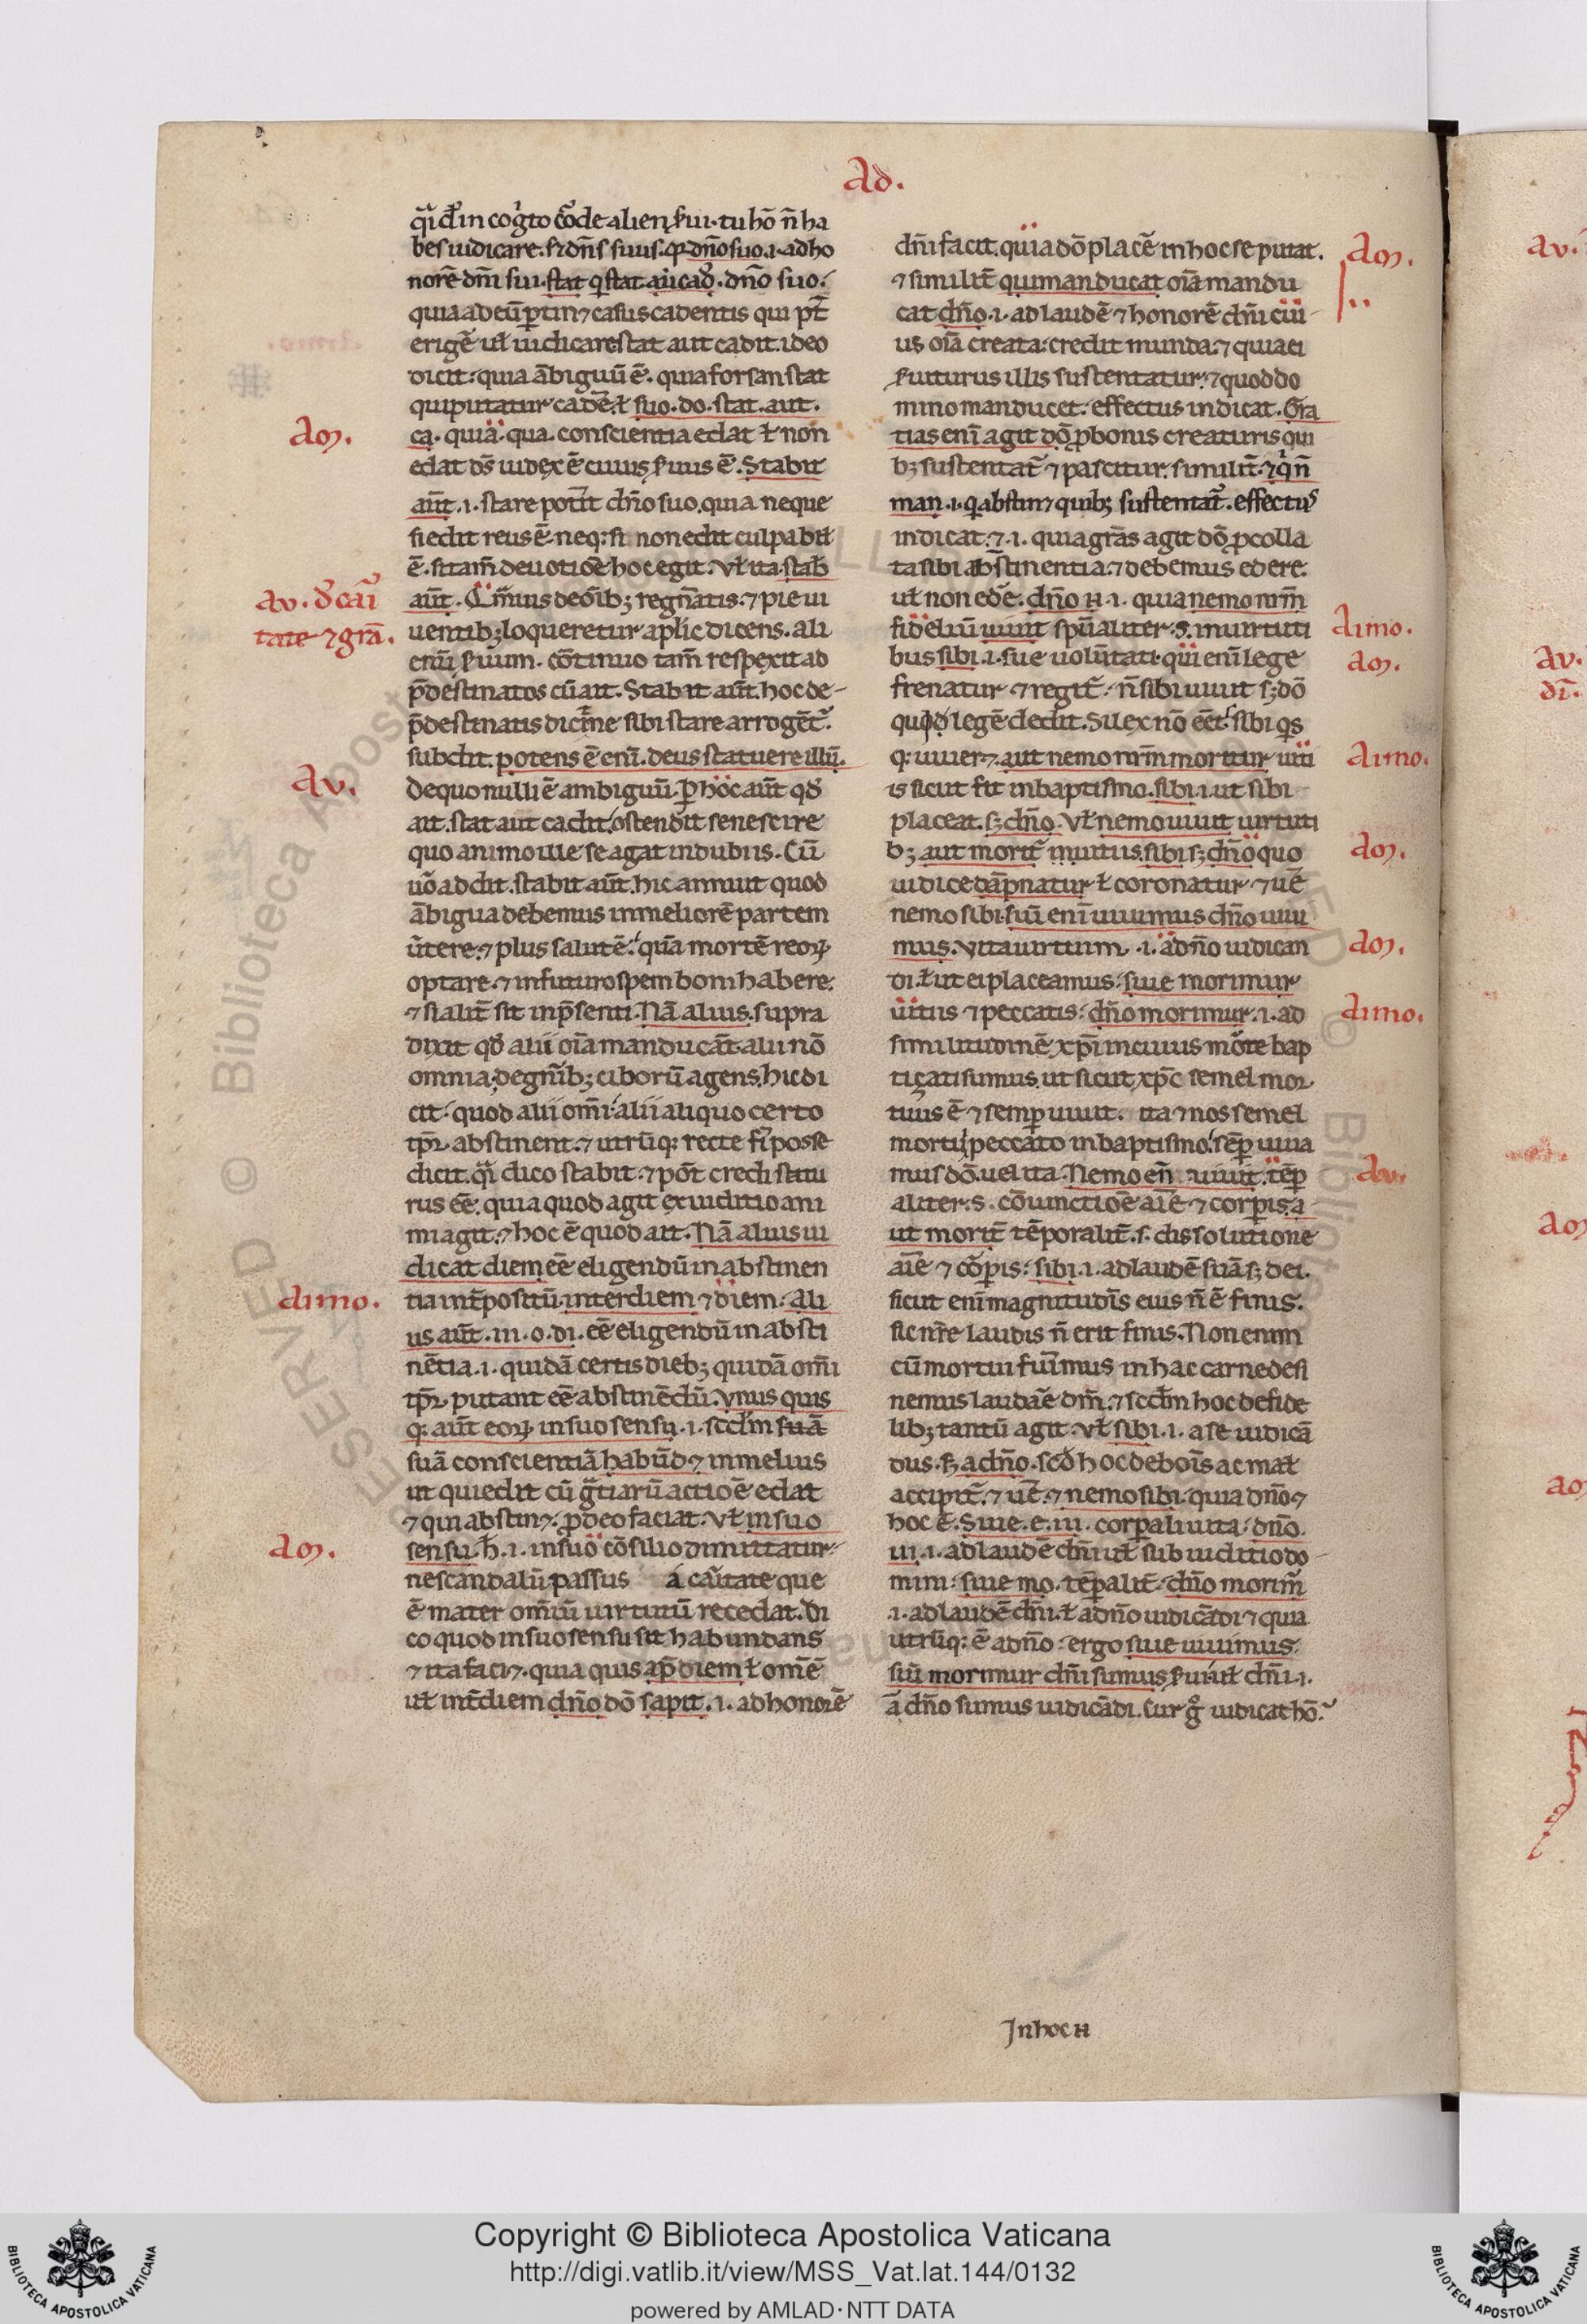 Ad.
bes iudicare. s; dn̄s suus. qͥ dn̄o suo .i. ad ho
norē dn̄i sui. stat qͥ stat. aut cad̄. dn̄o suo.
quia ad eū ꝑtin⁊ casus cadentis qui pōt
erigē ul̄ iudicare stat aut cadit. ideo
dicit: quia ābiguū ē. quia forsan stat
qui putatur cadē. ł suo. do. stat. aut.
am.
ca. quia. qua conscientia edat ł non
edat dṡ iudex ē cuius ẜuus ē. Stabit
aūt .i. stare potīt dn̄o suo. quia neque
si edit reus ē. neq; si non edit culpabił
ē. si tam̄ deuotiōe hoc egit. Vł ita. stab̄
uentib; loqueretur apl̄ic dicens. ali
enū ẜuum. cōtinuo tam̄ respexit ad
p̄destinatos cū ait. Stabit aūt. hoc de-
subdit. potens ē enī. deus statuere illū.
av.
de quo nulli ē ambiguū. Per hoc aūt qd̄
ait. stat aut cadit. ostendit se nescire
quo animo ille se agat in dubiis. Cū
uō addit. stabit aūt. hic annuit quod
ābigua debemus in meliorē partem
ūtere. ⁊ plus salutē. quā mortē reoꝝ
optare. ⁊ in futuro spem boni habere.
⁊ si alit̄ sit in p̄senti. Nā alius. supra
dixit qd̄ alii oīa manducāt. alii nō
omnia. de gn̄ib; ciborū agens. hic di
cit. quod alii om̄i. alii aliquo certo
tp̄r. abstinent. ⁊ utrūq; recte fi posse
dicit. qͥ dico stabit. ⁊ pōt credi statu
rus eē. quia quod agit ex iuditio ani
mi agit. ⁊ hoc ē quod ait. Nā alius iu
dicat diem eē eligendū in abstinen
aimo.
tia int̄positū. inter diem ⁊ diem. ali
us aūt. iu. o. di. eē eligendū in absti
nētia .i. quidā certis dieb; quidā om̄i
tp̄r. putant eē abstinēdū. Vnus quis
q; aūt eoꝝ in suo sensu .i. scd̄m suā
suā conscientiā habūd⁊ in melius
ut qui edit cū gr̄tiarū actiōe edat
⁊ qui abstin⁊. ꝓ deo faciat. Vł in suo
am.
sensu. h̄ .i. in suo cōsilio dimittatur.
ne scandalū passus a caritate que
ē mater om̄iū uirtutū recedat. di
co quod in suo sensu sit habundans
⁊ ita faci⁊. quia quis sap̄ diem ł omē
uł int̄ diem dn̄o dō sapit. .i. ad honorē
dn̄i facit. quia dō placē in hoc se putat.
am.
⁊ similit̄ qui manducat oīa mandu
cat dn̄o .i. ad laudē ⁊ honorē dn̄i cui
us oīa creata. credit munda. ⁊ quia ei
ẜuiturus illis sustentatur. ⁊ quod do
mino manducet. effectus indicat. Gra
tias enī agit dō ꝓ bonis creaturis qui
b; sustentat̄ ⁊ pascitur. similit̄. ⁊ qͥ n̄
man. .i. qͥ abstin⁊ quib; sustentat̄. effectus
indicat. ⁊ .i. quia grās agit dō ꝓ colla
ta sibi abstinentia. ⁊ debemus edere.
uł non edē. dn̄o .i. quia nemo nrm̄
fideliū uiuit spūaliter .s. in uirtuti
aimo.
bus sibi .i. sue uolūtati. qui enī lege
am.
frenatur ⁊ regit̄. n̄ sibi uiuit s; dō
qui legē dedit. Si lex nō eēt. sibi qͥs
q; uiuer⁊. aut nemo nrm̄ moritur uiti
aimo.
is sicut fit in baptismo. sibi .i. ut sibi
placeat. s; dn̄o. Vł nemo uiuit uirtuti
b; aut morit̄ in uitiis. sibi s; dn̄o quo
am.
iudice dāpnatur ł coronatur ⁊ uē
nemo sibi. siū enī uiuimus dn̄o uiui
mus. vita uirtutum .i. a dn̄o iudican
am.
di. ł ut ei placeamus. siue morimur
uitiis ⁊ peccatis. dn̄o morimur. .i. ad
aimo.
similitudinē xp̄i in cuius morte bap
tiçati sumus. ut sicut xp̄c semel mor
tuus ē ⁊ semꝑ uiuit. ita ⁊ nos semel
mortui peccato in baptismo. sēp uiua
mus dō. uel ita. Nemo en̄ uiuit. tēp
av.
aliter. s. cōiunctiōe aīe ⁊ corporis. a
ut morit̄ tēporalit̄. s. dissolutione
aīe ⁊ corꝑis. sibi .i. ad laudē suā s; dei.
sicut enī magnitudīs eius n̄ ē finis.
sic nr̄e laudis n̄ erit finis. Non enim
cū mortui fuīmus in hac carne desi
nemus laudāe dm̄. ⁊ scd̄m hoc de fide
lib; tantū agit. Vł sibi .i. a se iudicā
dus. s; a dn̄o. scd̄ hoc de bonis ac mał
accipit̄. ⁊ uē. ⁊ nemo sibi. quia dn̄o ⁊
hoc ē. Siue. e. ui. corꝑali uita. dn̄o.
ui. .i. ad laudē dn̄i uł sub iuditio do-
mini. siue mo. tēpalit̄. dn̄o morim̄
.i. ad laudē dn̄i. ł a dn̄o iudicādi ⁊ quia
utrūq; ē a dn̄o. ergo siue uiuimus.
siū morimur dn̄i sumus ẜui. uł dn̄i .i.
a dn̄o sumus iudicādi. Cur g̊ iudicat hō.
In hoc
Copyright © Biblioteca Apostolica Vaticana
http://digi.vatlib.it/view/MSS_Vat.lat.144/0132
powered by AMLAD·NTT DATA
BIBLIOTECA APOSTOLICA VATICANA
BIBLIOTECA APOSTOLICA VATICANA